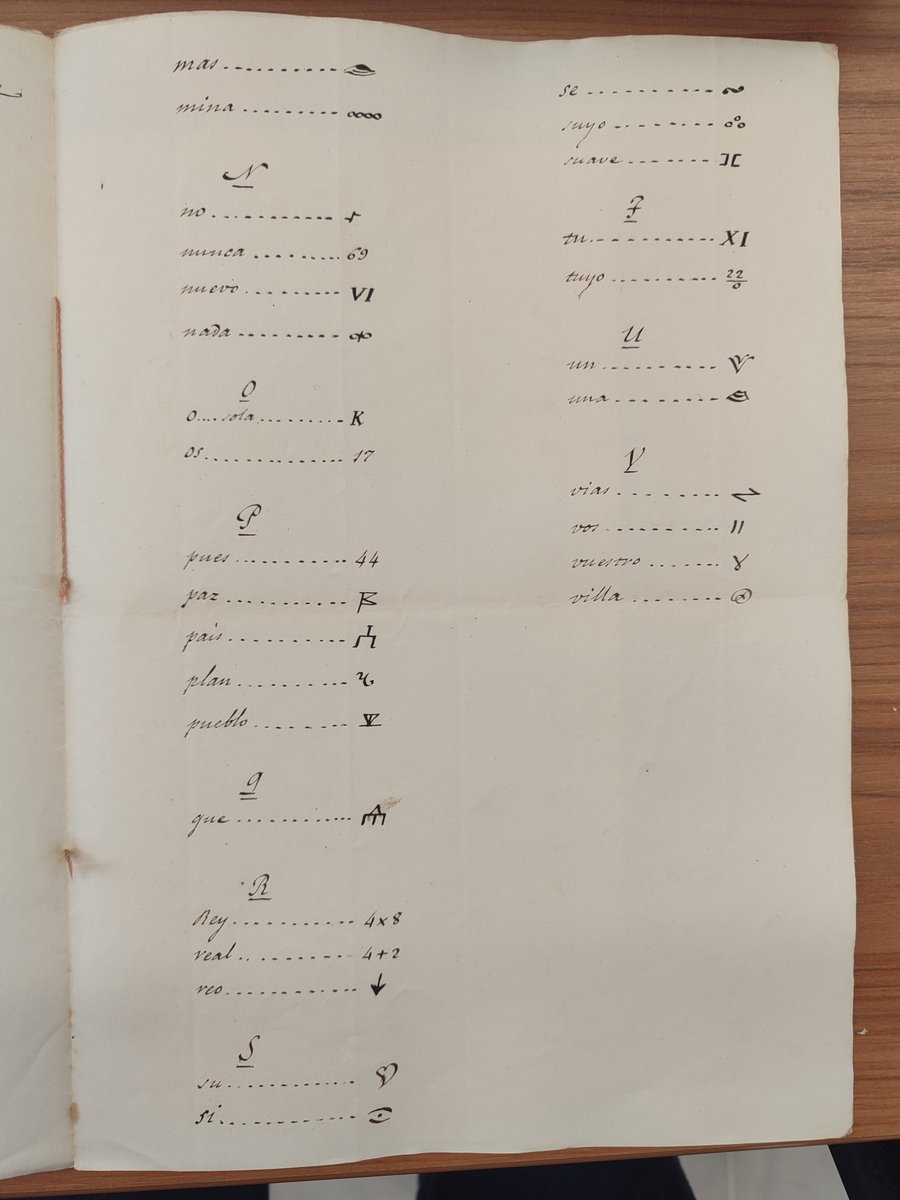 mas
mina
N
no +
nunca 69
nuevo VI
nada
O
o sola K
os 17
P
pues 44
paz
pais
plan
pueblo
q
que
R
Rey 4x8
real 4+2
reo ↓
S
su
si
se
suyo
suave
T
tu XI
tuyo 22/0
U
un
una
V
vias
vos II
vuestro
villa